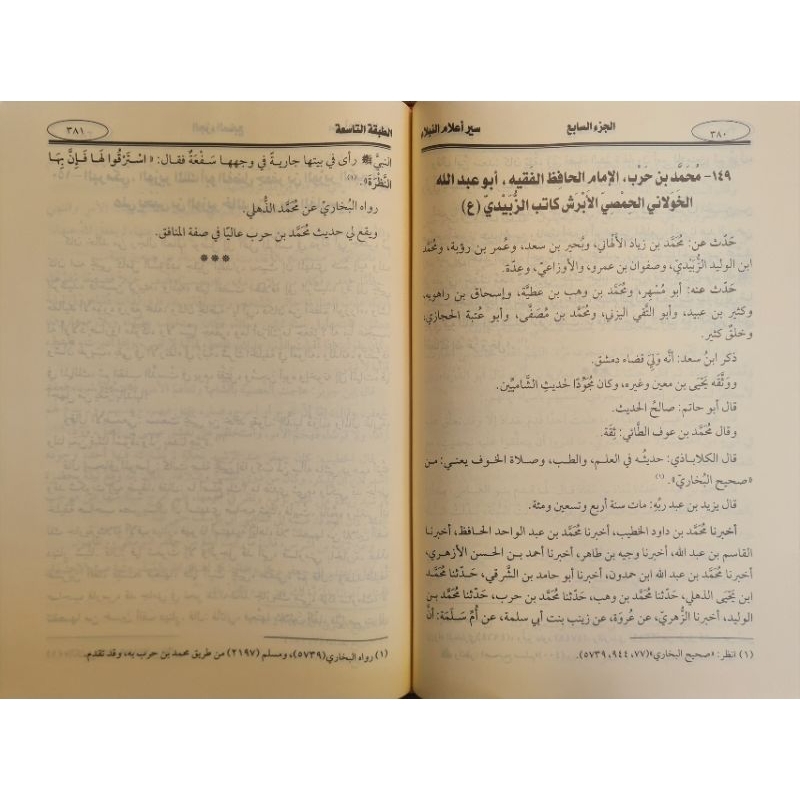 ٣٨٠
الجزء السابع
سير أعلام النبلاء
١٤٩- مُحَمَّد بن حَرْب، الإمام الحافظ الفقيه، أبو عبد الله
الخَوْلاني الحمْصي الأبْرش كاتب الزُّبَيْديّ (ع)
حَدّث عن: مُحَمَّد بن زياد الألهاني، وبُحير بن سعد، وعُمر بن رؤبة، ومُحَمَّد
ابن الوليد الزُّبَيْديّ، وصفوان بن عمرو، والأوزاعيّ، وعِدّة.
حَدّث عنه: أبو مُسْهِر، ومُحَمَّد بن وهب بن عطيَّة، وإسحاق بن راهويه،
وكثير بن عبيد، وأبو التَّقي اليزني، ومُحَمَّد بن مُصَفّى، وأبو عُتبة الحجازي،
وخلقٌ كثير.
ذكر ابنُ سعد: أنَّه وَلِيَ قضاء دمشق.
ووَثَّقه يَحْيَى بن معين وغيره، وكان مُجَوِّدًا لحديثِ الشَّاميِّين.
قال أبو حاتم: صالحُ الحديث.
وقال مُحَمَّد بن عوف الطَّائي: ثِقَة.
قال الكلاباذي: حديثُه في العلم، والطب، وصلاة الخوف يعني: من
«صحيح البُخاريّ». (١)
قال يزيد بن عبد ربِّه: مات سنة أربع وتسعين ومئة.
أخبرنا مُحَمَّد بن داود الخطيب، أخبرنا مُحَمَّد بن عبد الواحد الحافظ، أخبرنا
القاسم بن عبد الله، أخبرنا وجيه بن طاهر، أخبرنا أحمد بن الحسن الأزهري،
أخبرنا مُحَمَّد بن عبد الله ابن حمدون، أخبرنا أبو حامد بن الشَّرقي، حَدّثنا مُحَمَّد
ابن يَحْيَى الذهلي، حَدّثنا مُحَمَّد بن وهب، حَدّثنا مُحَمَّد بن حرب، حَدّثنا مُحَمَّد بن
الوليد، أخبرنا الزُّهريّ، عن عُروَة، عن زينب بنت أبي سلمة، عن أُمّ سَلَمَة: أنَّ
(١) انظر: «صحيح البخاري»(٧٧، ٩٤٤، ٥٧٣٩).
الطبقة التاسعة
٣٨١
النبيَّ ﷺ رأى في بيتها جاريةً في وجهها سَفْعَةٌ فقال: « اسْتَرْقُوا لَهَا فَإِنَّ بِهَا
النَّظْرَة». (١)
رواه البُخاريّ عن مُحَمَّد الذُّهلي.
ويقع لي حديث مُحَمَّد بن حرب عاليًا في صفة المنافق.
***
(١) رواه البخاري(٥٧٣٩)، ومسلم (٢١٩٧) من طريق محمد بن حرب به، وقد تقدم.